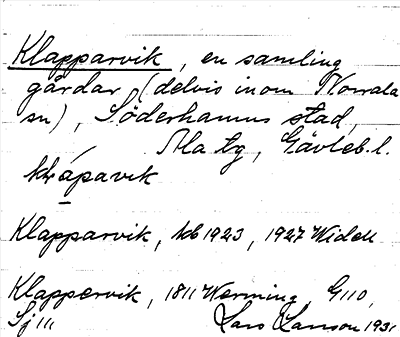 Klapparvik, en samling
gårdar (delvis inom Norrala
sn), Söderhamns stad,
Ala tg, Gävleb. l.
klápavik
Klapparvik, kb 1923, 1927 Widell
Klappervik, 1811 Werming G110,
Sj 111 Lars Larsson 1931